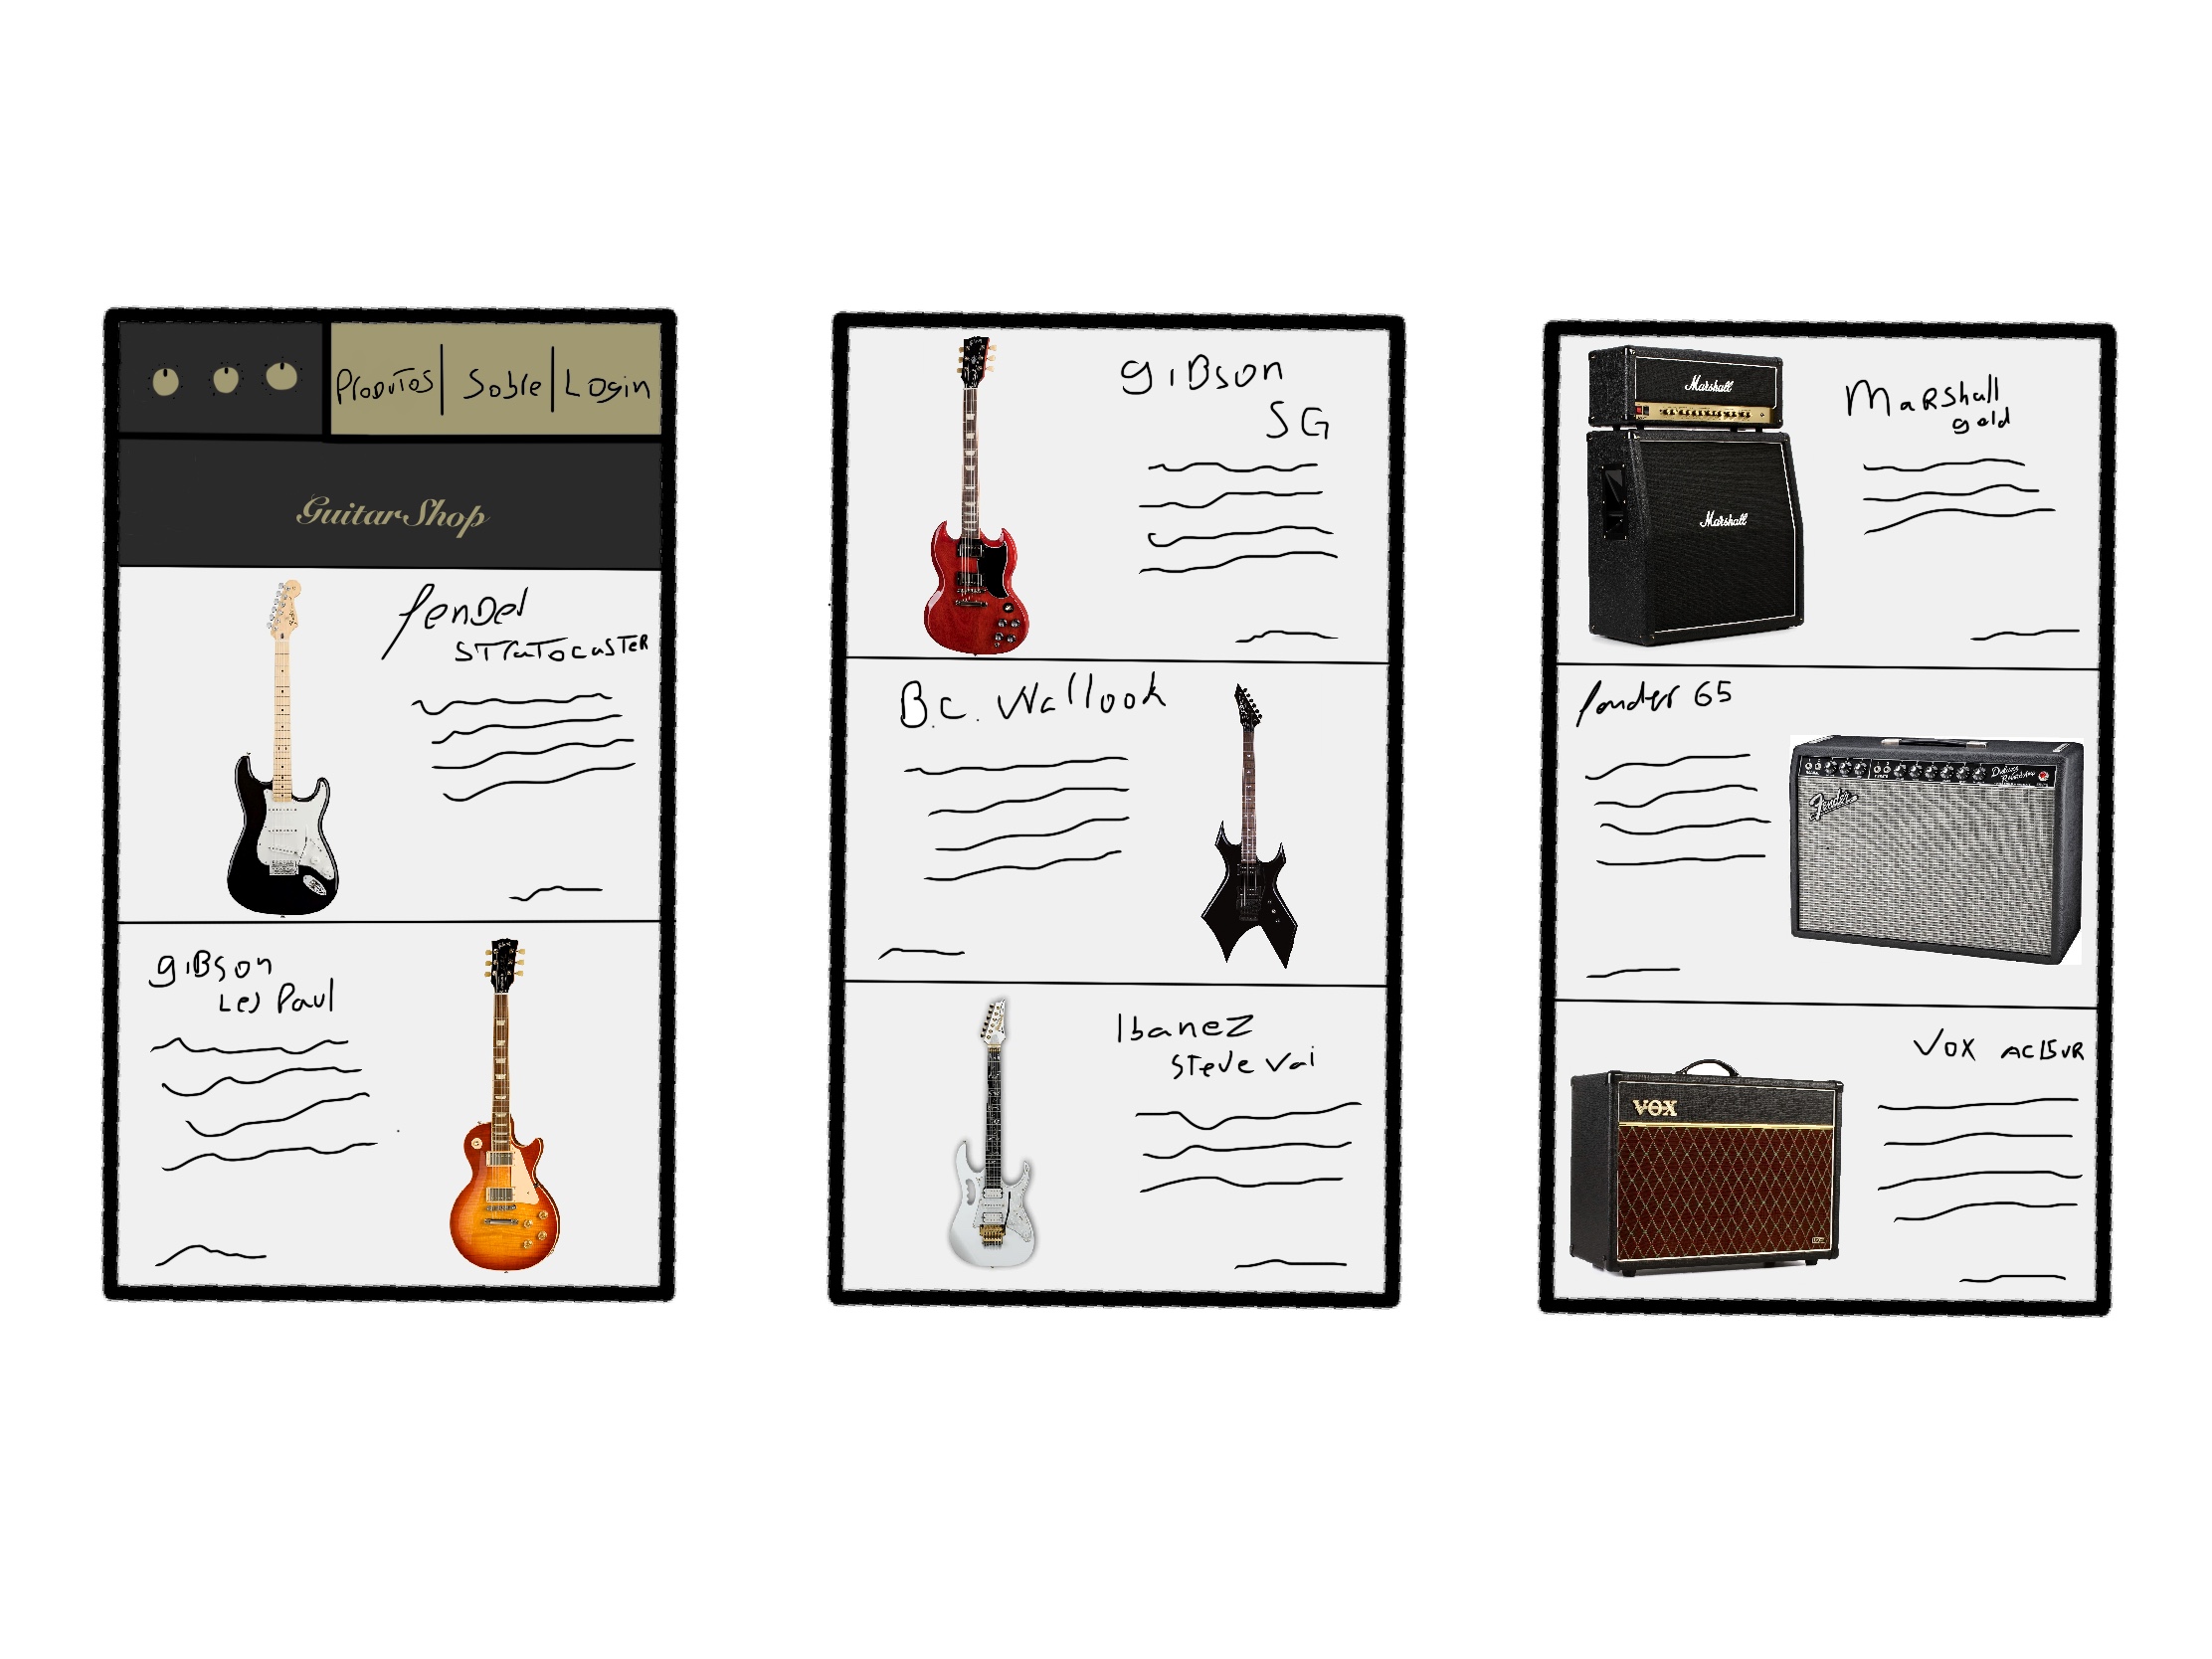 Produtos | Sobre | Login
GuitarShop
fender
STratocaster
giBson
Les Paul
giBson
SG
B.C. Wallook
Ibanez
Steve Vai
Marshall
Marshall
Marshall
gold
fender 65
Deluxe
Reverb-Amp
Fender
Vox AC15VR
VOX